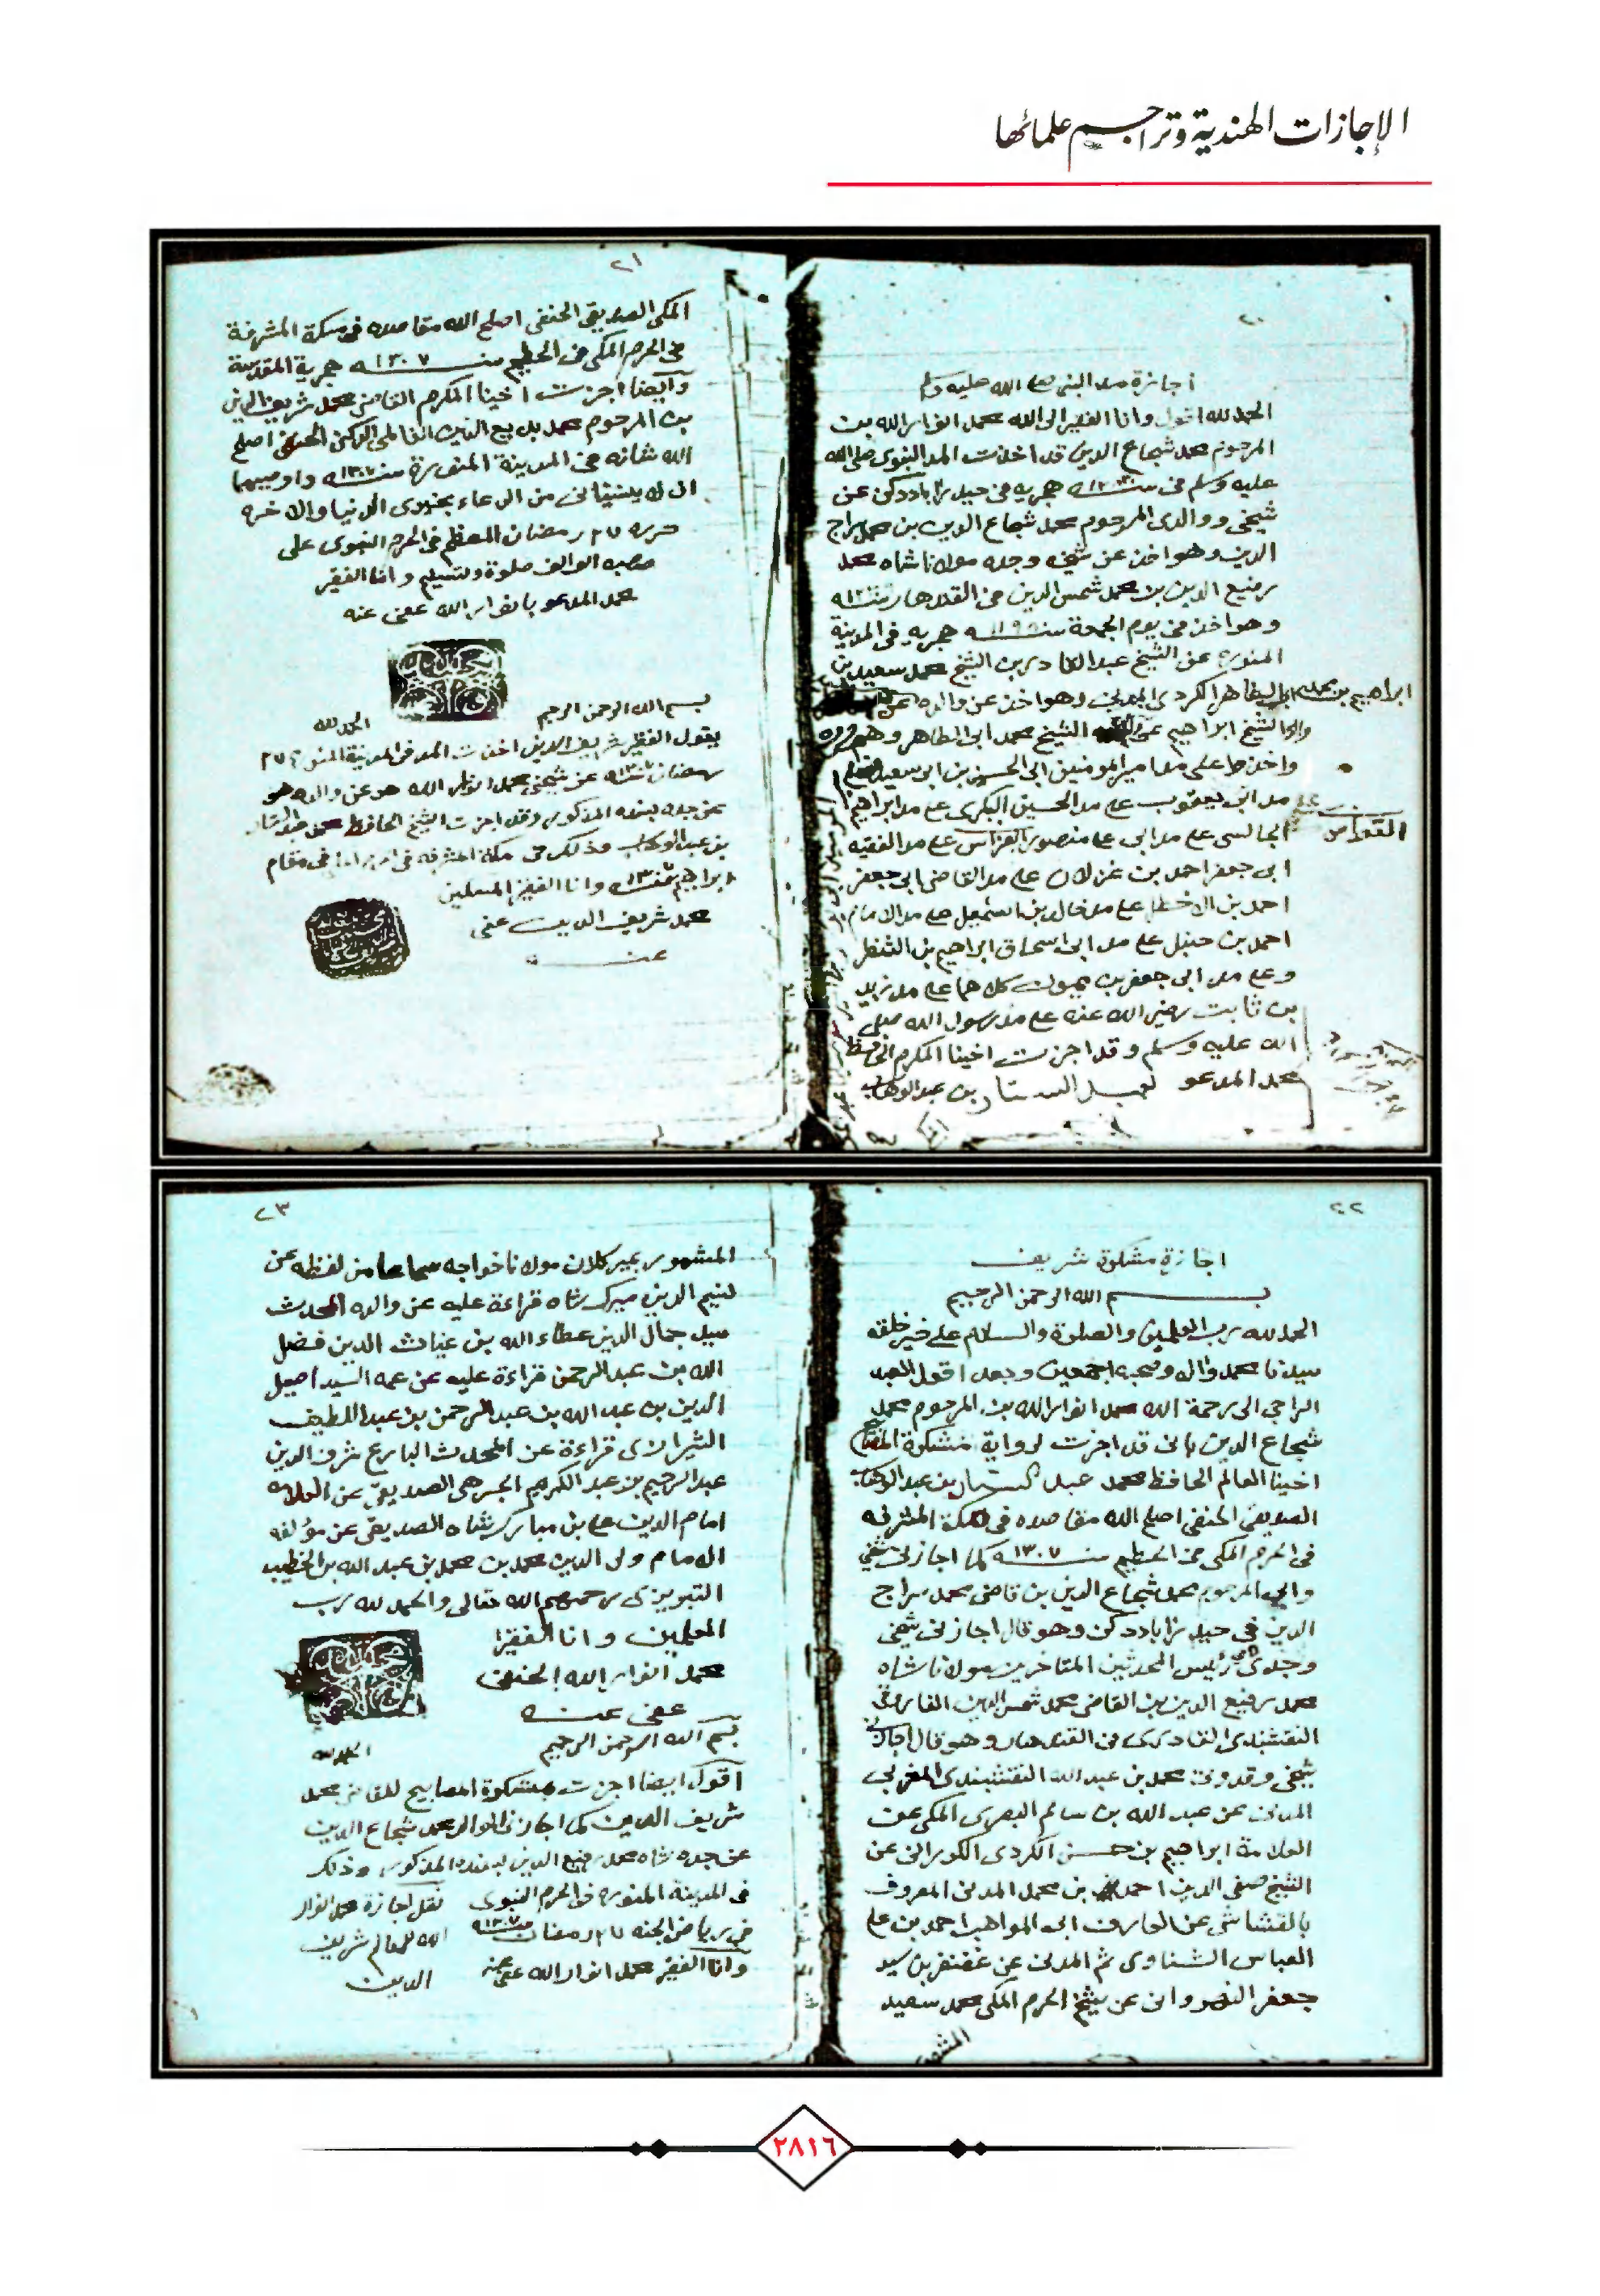 الإجازات الهندية وتراجم علمائها
٢٠
اجازة مد النبي صلى الله عليه وسلم
الحمد لله اقول وانا الفقير الى الله محمد انوار الله بن
المرحوم محمد شجاع الدين قد اخذت المد النبوى صلى الله
عليه وسلم فى سنه هجريه فى حيدراباد دكن عن
شيخى ووالدى المرحوم محمد شجاع الدين بن محمد سراج
الدين وهو اخذ عن شيخه وجده مولانا شاه محمد
رفيع الدين بن محمد شمس الدين فى القندهار سنه
وهو اخذ فى يوم الجمعة سنه ١١٩٥ هجريه فى المدينة
المنوره عن الشيخ عبد القادر بن الشيخ محمد سعيد بن
ابراهيم بن محمد ابى الطاهر الكردى المدنى وهو اخذ عن والده عن
والده الشيخ ابراهيم عن الشيخ محمد ابى الطاهر وهو
واخذ على مد امير المومنين ابى الحسن بن ابى سعيد
على مد ابى يعقوب على مد الحسين البكرى على مد ابراهيم
الجالسى على مد ابى على منصور القواس على مد الفقيه
القواس
ابى جعفر احمد بن غزلان على مد القاضى ابى جعفر
احمد بن الاخطل على مد خالد بن اسمعيل على مد الامام
احمد بن حنبل على مد ابى اسحاق ابراهيم بن الشنظر
وعلى مد ابى جعفر بن ميمون كلاهما على مد زيد
بن ثابت رضى الله عنه على مد رسول الله صلى
الله عليه وسلم وقد اجزت اخينا المكرم الحافظ
محمد المدعو لعبد الستار بن عبد الوهاب
٢١
المكى الصديقى الحنفى اصلح الله مقاصده فى مكة المشرفة
فى الحرم المكى فى الحطيم سنه ١٣٠٧ هجرية المقدسة
وايضا اجزت اخينا المكرم القاضى محمد شريف الدين
بن المرحوم محمد بديع الدين الفاطمى الدكنى الحنفى اصلح
الله شانه فى المدينة المنورة سنه ١٣٠٧ه واوصيهما
ان لا ينسيانى من الدعاء بخيرى الدنيا والاخره
حرره ٢٧ رمضان المعظم فى الحرم النبوى على
صاحبه الوالف صلوة وتسليم وانا الفقير
محمد المدعو بانوار الله عفى عنه
بسم الله الرحمن الرحيم
الحمد لله
يقول الفقير شريف الدين اخذت المد فى المدينة المنورة ٢٧
رمضان سنه عن شيخى محمد انوار الله هو عن والده هو
عن جده بسنده المذكور وقد اجزت الشيخ الحافظ محمد عبد الستار
بن عبد الوهاب وذلك فى مكة المشرفه فى مقام
ابراهيم سنه وانا الفقير المسلمين
محمد شريف الدين عفى
عنه
٢٢
اجازة مشكوة شريف
بسم الله الرحمن الرحيم
الحمد لله رب العلمين والصلوة والسلام على خير خلقه
سيدنا محمد واله وصحبه اجمعين وبعد اقول العبد
الراجى الى رحمة الله محمد انوار الله بن المرحوم محمد
شجاع الدين بانى قد اجزت لرواية مشكوة المصابيح
اخينا العالم الحافظ محمد عبد الستار بن عبد الوهاب
الصديقى الحنفى اصلح الله مقاصده فى مكة المشرفه
فى الحرم المكى فى الحطيم سنه ١٣٠٧ كما اجازنى شيخى
وابى المرحوم محمد شجاع الدين بن قاضى محمد سراج
الدين فى حيدراباد دكن وهو قال اجازنى شيخى
وجدى رئيس المحدثين المتاخرين مولانا شاه
محمد رفيع الدين بن القاضى محمد شمس الدين الفاروقى
النقشبندى القادرى فى القندهار وهو قال اجازنى
شيخى وقدوتى محمد بن عبد الله النقشبندى المغربى
المدنى عن عبد الله بن سالم البصرى المكى عن
العلامة ابراهيم بن حسن الكردى الكورانى عن
الشيخ صفى الدين احمد بن محمد المدنى المعروف
بالقشاشى عن العارف ابى المواهب احمد بن على
العباس الشناوى ثم المدنى عن غضنفر بن سيد
جعفر النهروانى عن شيخ الحرم المكى محمد سعيد
المشهور
٢٣
المشهور بمير كلان مولانا خواجه سماعا من لفظه عن
نسيم الدين ميرك شاه قراءة عليه عن والده المحدث
سيد جمال الدين عطاء الله بن غياث الدين فضل
الله بن عبد الرحمن قراءة عليه عن عمه السيد اصيل
الدين بن عبد الله بن عبد الرحمن بن عبد اللطيف
الشيرازى قراءة عن المحدث البارع شرف الدين
عبد الرحيم بن عبد الكريم الجرهى الصديقى عن العلامه
امام الدين على بن مبارك شاه الصديقى عن مؤلفه
الامام ولى الدين محمد بن محمد بن عبد الله بن الخطيب
التبريزى رحمهم الله تعالى والحمد لله رب
العلمين وانا الفقير
محمد انوار الله الحنفى
عفى عنه
بسم الله الرحمن الرحيم
الحمد لله
اقول ايضا اجزت بمشكوة المصابيح للقاضى محمد
شريف الدين كما اجازنى الوالد محمد شجاع الدين
عن جده شاه محمد رفيع الدين بسنده المذكور وذلك
فى المدينة المنوره فى الحرم النبوى
فى رياض الجنه ٢٧ رمضان سنه ١٣٠٧
وانا الفقير محمد انوار الله عفى عنه
نقل اجازة محمد انوار
الله للعالم شريف
الدين
٢٨١٦